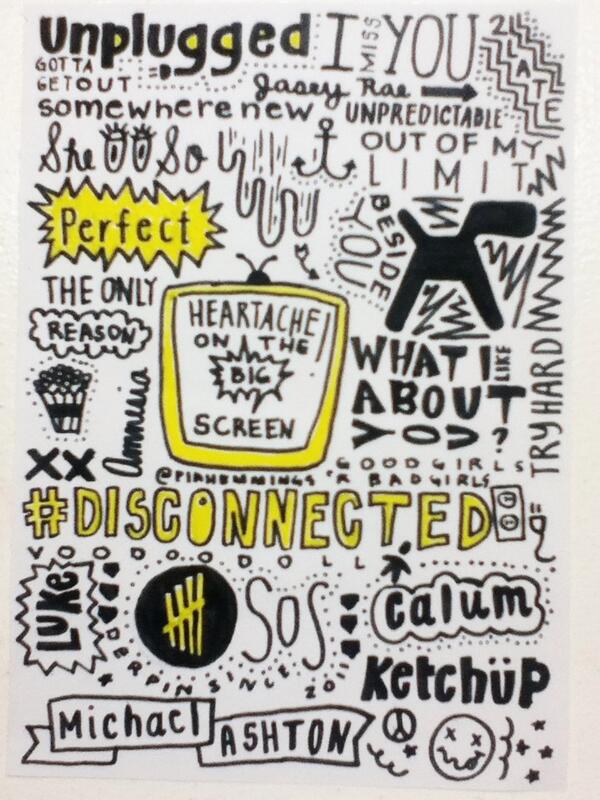 unplugged
I MISS YOU
2 LATE
GOTTA
GET OUT
Jasey Rae
somewhere new
UNPREDICTABLE
She So
OUT OF MY
LIMIT
Perfect
BESIDE
YOU
THE ONLY
REASON
HEARTACHE
ON THE
BIG
SCREEN
Amnesia
XX
WHAT I LIKE
ABOUT
YOU?
TRY HARD
@PIAHEMMINGS
GOODGIRLS
R BADGIRLS
#DISCONNECTED
VOODOODOLL
LUKE
SOS
DERPIN SINCE 2011
calum
Ketchüp
Michael
ASHTON